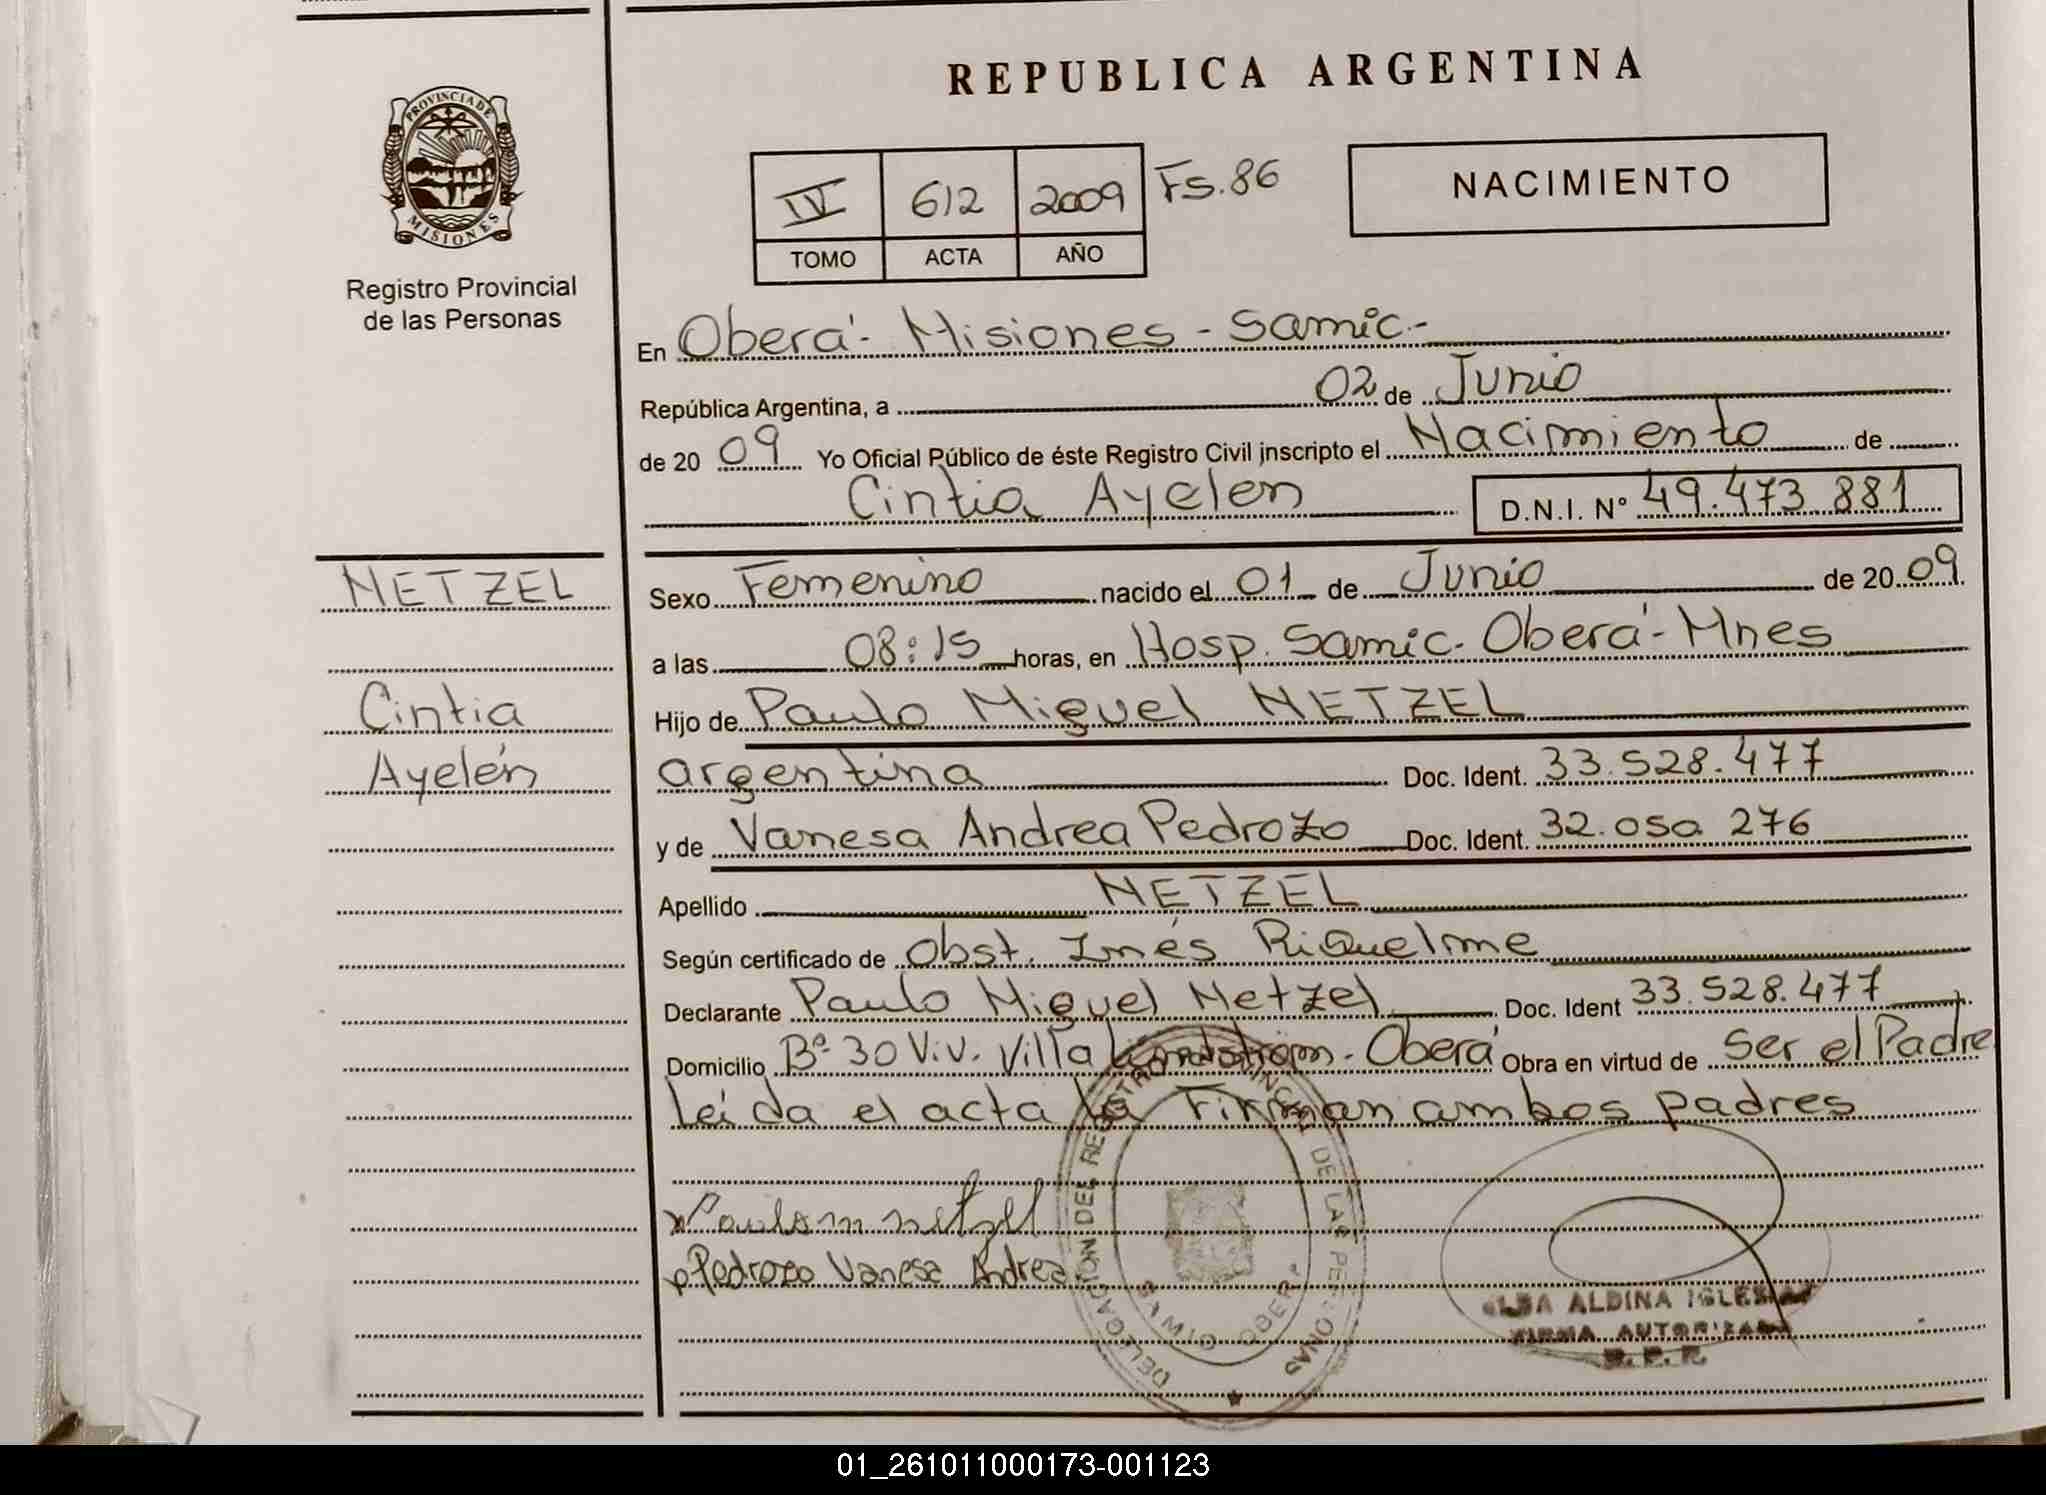 REPUBLICA ARGENTINA
PROVINCIA DE MISIONES
Registro Provincial
de las Personas
IV 612 2009 Fs. 86
TOMO ACTA AÑO
NACIMIENTO
En Oberá - Misiones - Samic -
República Argentina, a 02 de Junio
de 20 09 Yo Oficial Público de éste Registro Civil inscripto el Nacimiento de
Cintia Ayelen D.N.I. N° 49.473.881
NETZEL
Cintia
Ayelén
Sexo Femenino nacido el 01 de Junio de 20 09
a las 08:15 horas, en Hosp. Samic - Oberá - Mnes
Hijo de Paulo Miguel NETZEL
argentina Doc. Ident. 33.528.477
y de Vanesa Andrea Pedrozo Doc. Ident. 32.050 276
Apellido NETZEL
Según certificado de Obst. Inés Riquelme
Declarante Paulo Miguel Netzel Doc. Ident 33.528.477
Domicilio Bº 30 Viv. Villa Lindstrom - Oberá Obra en virtud de Ser el Padre
Leída el acta la Firman ambos padres
Paulo m netzel
Pedrozo Vanesa Andrea
DELEGACION DEL REGISTRO PROVINCIAL DE LAS PERSONAS
OBERA
ALDINA IGLESIAS
FIRMA AUTORIZADA
R. P. P.
01_261011000173-001123